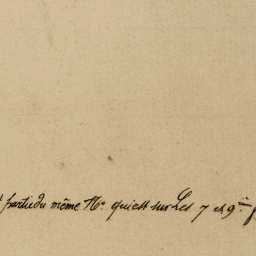 partie du même N.º qui est sur Les 7 et 9.e